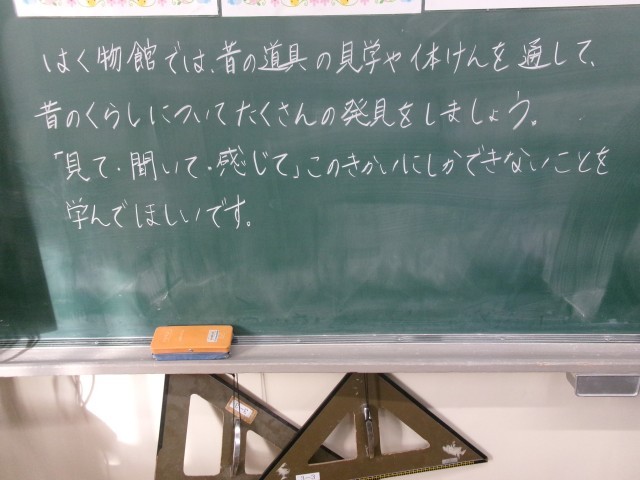 はく物館では、昔の道具の見学や体けんを通して、
昔のくらしについてたくさんの発見をしましょう。
「見て・聞いて・感じて」このきかいにしかできないことを
学んでほしいです。